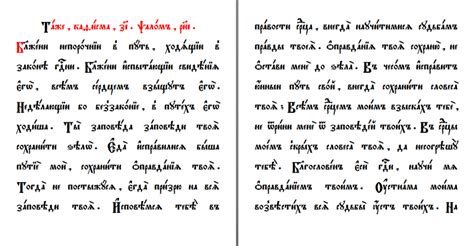 Та́же, каѳи́сма, з҃і. ѱало́мъ, р҃иі.
Бл҃же́ни непоро́чнїи в̾ пу́ть, ходѧ́щїи в̾
зако́нѣ гдⷭ҇ни. Бл҃же́ни испыта́ющїи свидѣ́нїѧ
є҆гѡ̀, всѣ́мъ се́рдцемъ взы́щутъ є҆гѡ̀.
Недѣ́лающїи бо беззако́нїѧ, в̾ путе́хъ є҆гѡ̀
ходи́ша. Ты̀ заповѣ́да за́повѣди твоѧ̀
сохрани́ти ѕѣлѡ̀. Єда̀ и҆спра́вилисѧ бы́ша
путїѐ моѝ, сохрани́ти ѡ҆правда́нїѧ твоѧ̀.
Тогда̀ не постыжу́сѧ, є҆гда̀ при́зрю на всѧ̀
за́повѣди твоѧ̀. И҆сповѣ́мсѧ тебѣ̀ в̾
пра́вости се́рдца, внегда̀ научи́тимисѧ судьба́мъ
пра́вды твоеѧ̀. Ѡ҆правда́нїѧ твоѧ̀ сохраню̀, не
ѡ҆ста́ви менѐ до ѕѣла̀. В̾ че́сомъ и҆спра́витъ
ю҆́ныи пу́ть сво́й, внегда̀ сохрани́ти словеса̀
твоѧ̀; Всѣ́мъ се́рдцемъ мои́мъ взыска́хъ тебѐ,
не ѿри́ни менѐ ѿ за́повѣдей твои́хъ. В̾ се́рдцы
мое́мъ скры́хъ словеса̀ твоѧ̀, да не согрѣшу̀
тебѣ̀. Блгⷭ҇ове́нъ є҆сѝ гдⷭ҇и, научи́ мѧ
ѡ҆правда́нїемъ твои́мъ. Оу҆стна́ма мои́ма
возвѣсти́хъ всѧ̀ судьбы̀ оу҆́стъ твои́хъ. На